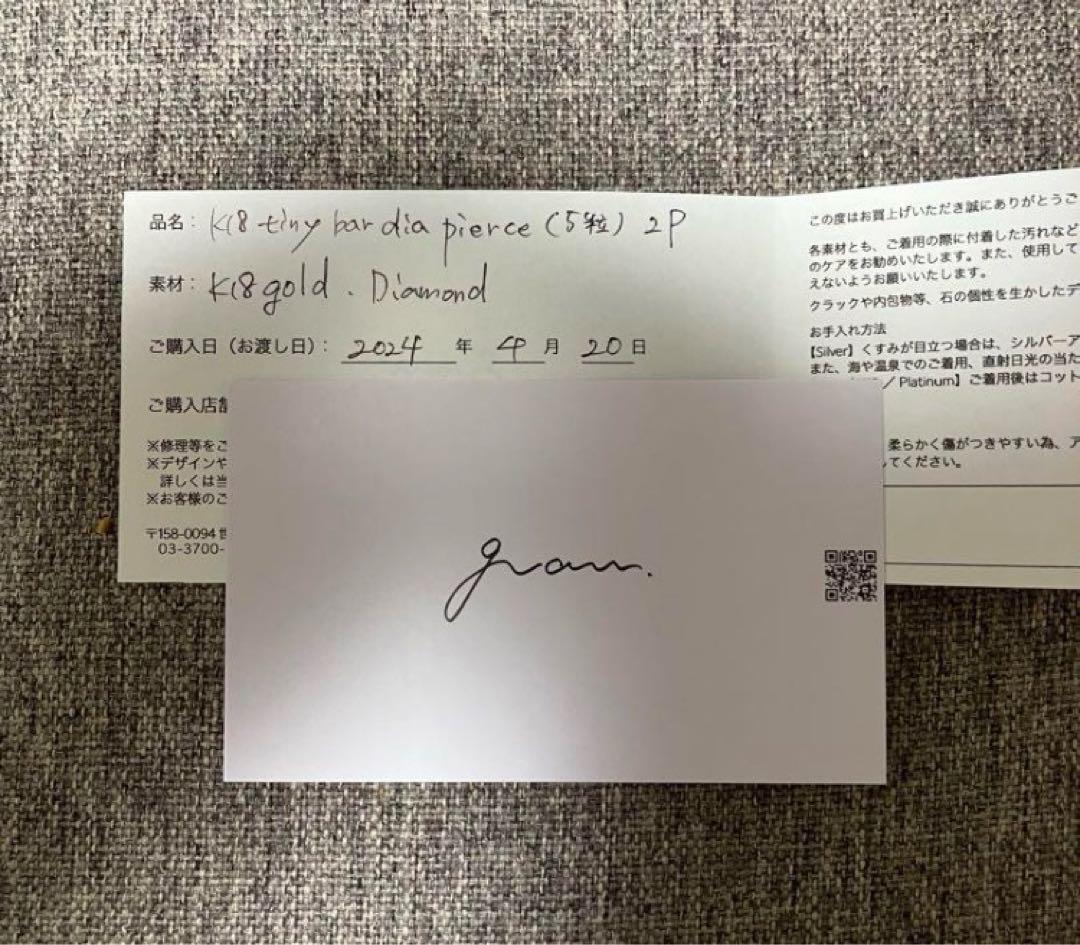 品名： K18 tiny bar dia pierce (5粒) 2P
素材： K18 gold . Diamond
ご購入日（お渡し日）： 2024 年 4 月 20 日
ご購入店舗
※修理等をご
※デザインや
詳しくは当
※お客様のご
〒158-0094 世
03-3700-
この度はお買上げいただき誠にありがとうご
各素材とも、ご着用の際に付着した汚れなど
のケアをお勧めいたします。また、使用して
えないようお願いいたします。
クラックや内包物等、石の個性を生かしたデ
お手入れ方法
【Silver】くすみが目立つ場合は、シルバーア
また、海や温泉でのご着用、直射日光の当た
／Platinum】ご着用後はコット
柔らかく傷がつきやすい為、ア
てください。
gram.